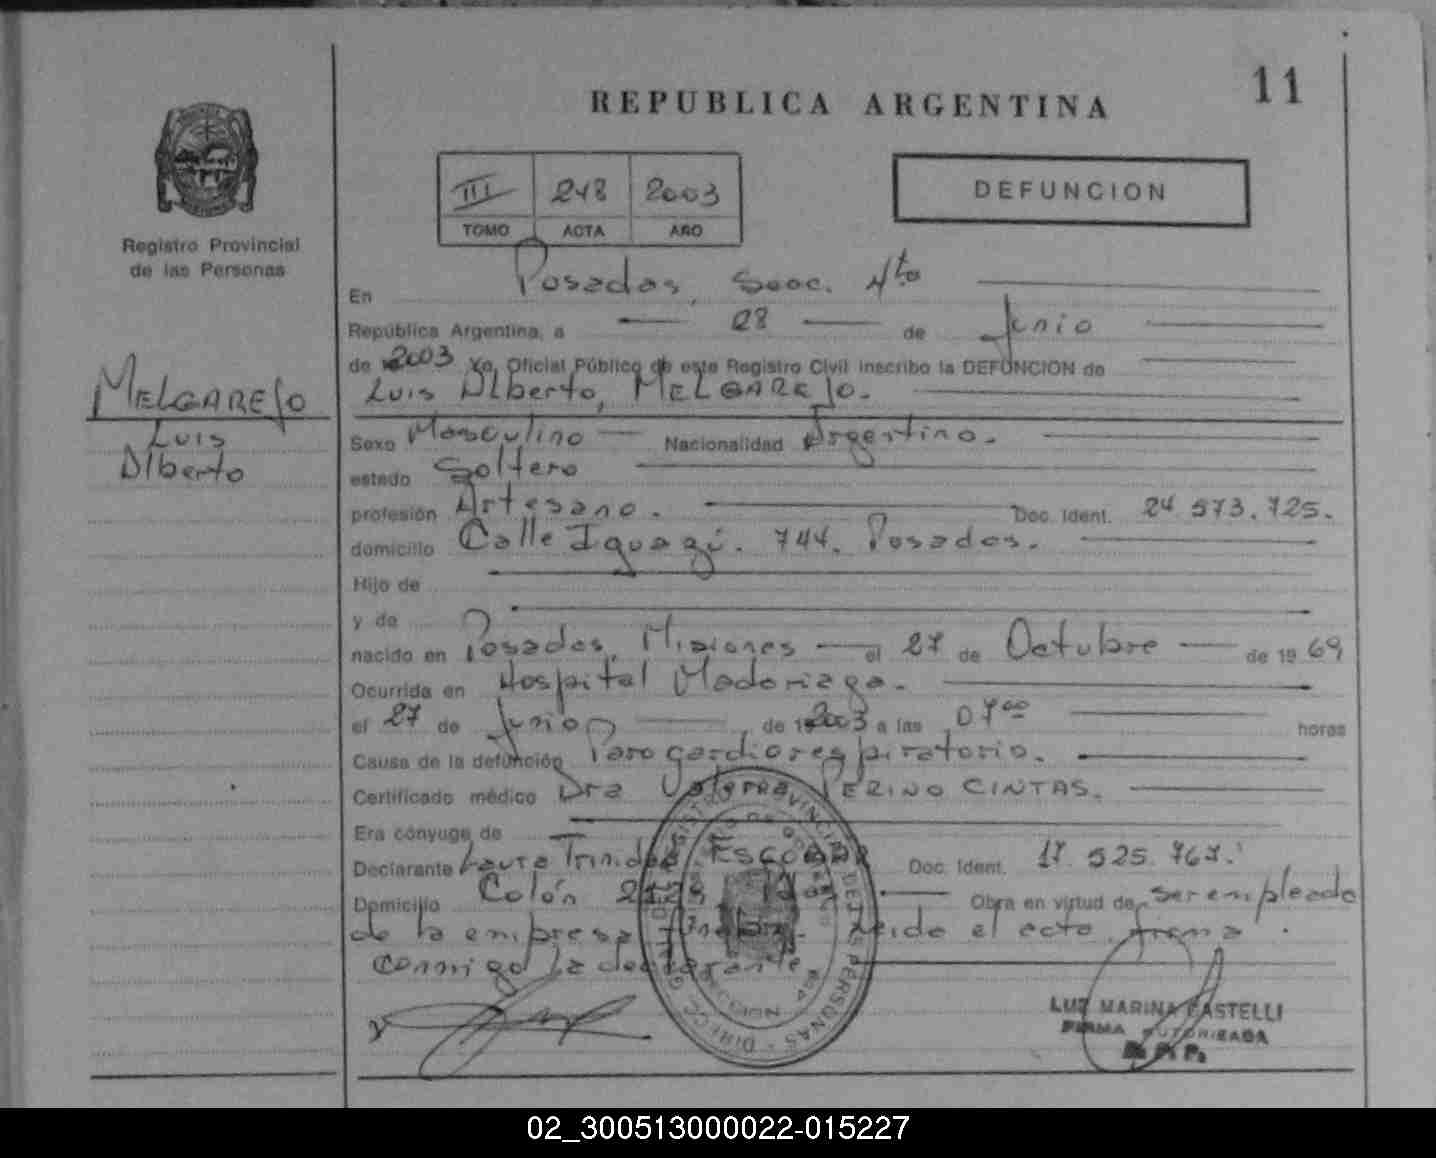 11
REPUBLICA ARGENTINA
III 248 2003
TOMO ACTA AÑO
DEFUNCION
Registro Provincial
de las Personas
MELGAREJO
Luis
Alberto
En Posadas, Secc. 4ta
República Argentina, a 28 de Junio
de 2003 Yo, Oficial Público de este Registro Civil inscribo la DEFUNCION de
Luis Alberto, MELGAREJO.
Sexo Masculino Nacionalidad Argentino.
estado Soltero
profesión Artesano. Doc. Ident. 24.573.725.
domicilio Calle Iguazú. 744. Posadas.
Hijo de
y de
nacido en Posadas, Misiones el 27 de Octubre de 1969
Ocurrida en Hospital Madariaga.
el 27 de Junio, de 2003 a las 07 00 horas
Causa de la defunción Paro cardiorespiratorio.
Certificado médico Dra PERINO CINTAS.
Era cónyuge de
Declarante Laura Trinidad ESCOBAR Doc. Ident. 17.525.767.
Domicilio Colón Obra en virtud de ser empleada
de la empresa Leida el acta, firma
conmigo la declarante
LUZ MARINA CASTELLI
FIRMA AUTORIZADA
R.P.P.
02_300513000022-015227